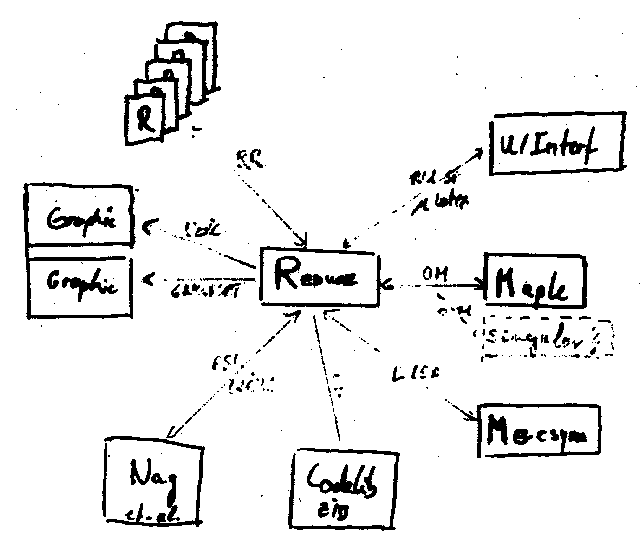 R
RR
U/Interf
Graphic
Graphic
Reduce
OM
Maple
Singular ?
LISP
Macsyma
Nag
et.al.
Codelib
ZIB